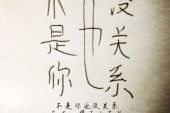 不是你
也
没关系
不是你也没关系